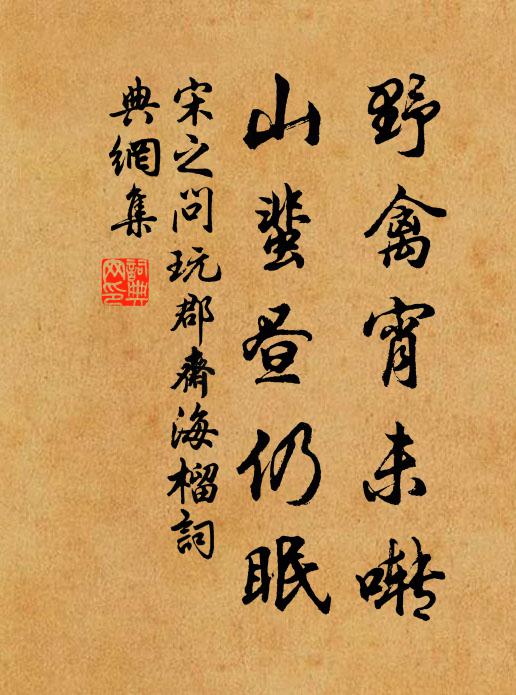 野禽宵未啭
山蜚昼仍眠
宋之问玩郡斋海榴詞
典網集
詞典網印